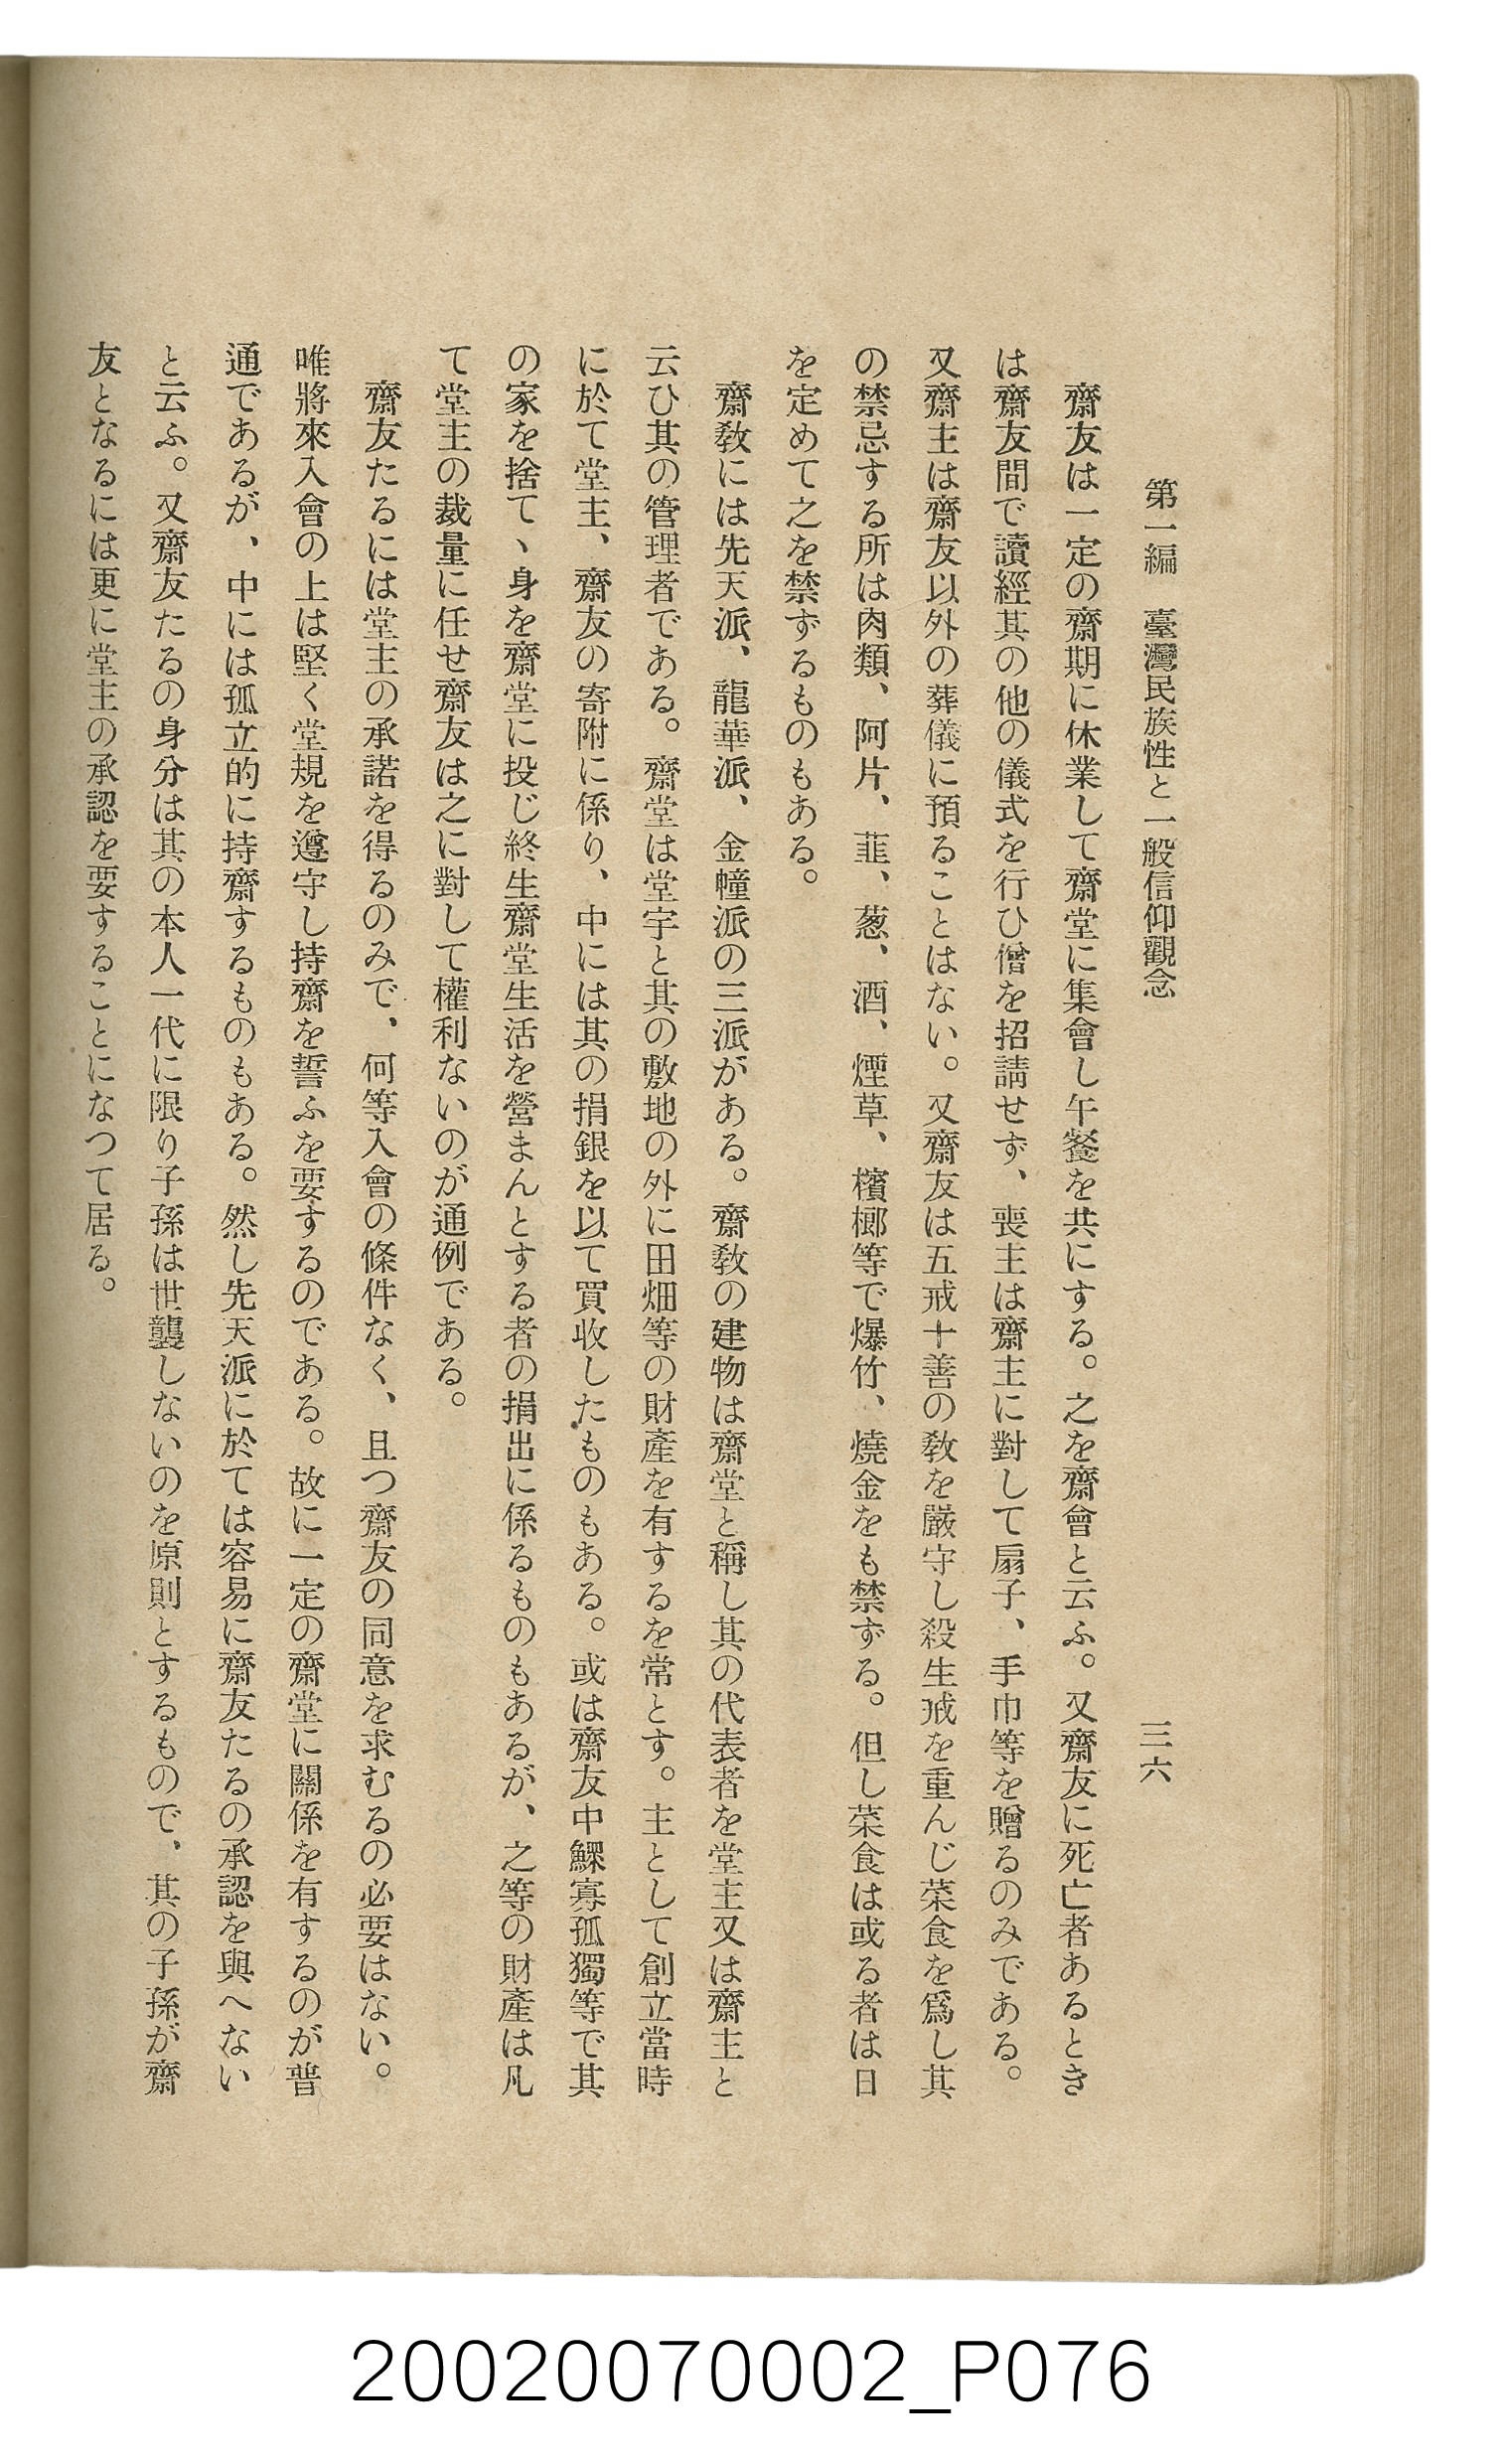 第一編　臺灣民族性と一般信仰觀念
三六
齋友は一定の齋期に休業して齋堂に集會し午餐を共にする。之を齋會と云ふ。又齋友に死亡者あるとき
は齋友間で讀經其の他の儀式を行ひ僧を招請せず、喪主は齋主に對して扇子、手巾等を贈るのみである。
又齋主は齋友以外の葬儀に預ることはない。又齋友は五戒十善の教を嚴守し殺生戒を重んじ菜食を爲し其
の禁忌する所は肉類、阿片、韮、葱、酒、煙草、檳榔等で爆竹、燒金をも禁ずる。但し菜食は或る者は日
を定めて之を禁ずるものもある。
齋教には先天派、龍華派、金幢派の三派がある。齋教の建物は齋堂と稱し其の代表者を堂主又は齋主と
云ひ其の管理者である。齋堂は堂宇と其の敷地の外に田畑等の財產を有するを常とす。主として創立當時
に於て堂主、齋友の寄附に係り、中には其の捐銀を以て買收したものもある。或は齋友中鰥寡孤獨等で其
の家を捨て、身を齋堂に投じ終生齋堂生活を營まんとする者の捐出に係るものもあるが、之等の財產は凡
て堂主の裁量に任せ齋友は之に對して權利ないのが通例である。
齋友たるには堂主の承諾を得るのみで、何等入會の條件なく、且つ齋友の同意を求むるの必要はない。
唯將來入會の上は堅く堂規を遵守し持齋を誓ふを要するのである。故に一定の齋堂に關係を有するのが普
通であるが、中には孤立的に持齋するものもある。然し先天派に於ては容易に齋友たるの承認を與へない
と云ふ。又齋友たるの身分は其の本人一代に限り子孫は世襲しないのを原則とするもので、其の子孫が齋
友となるには更に堂主の承認を要することになつて居る。
20020070002_P076